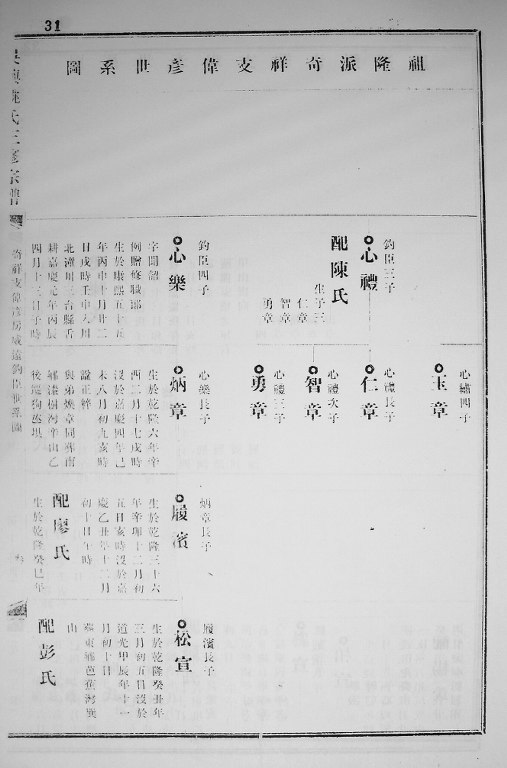 31
祖隆派奇祥支偉彥世系圖
鈞臣三子
心禮
配陳氏
生子三
仁章
智章
勇章
鈞臣四子
心樂
字聞韶
例贈修職郎
生於康熙五十五
年丙申十月廿二
日戌時壬申入川
北潼川三台縣舌
耕嘉慶元年丙辰
四月十三日子時
心繡四子
玉章
心禮長子
仁章
心禮次子
智章
心禮三子
勇章
心樂長子
炳章
生於乾隆六年辛
酉二月十七戌時
沒於嘉慶四年己
未八月初九亥時
諡正粹
與弟煥章同葬南
後
炳章長子
履濱
生於乾隆三十六
年辛卯十二月初
五日亥時沒於嘉
慶乙丑年十二月
初十日午時
配廖氏
生於乾隆癸巳年
履濱長子
松宣
生於乾隆癸丑年
三月初五日沒於
道光甲辰年十一
月初十日
山
配彭氏